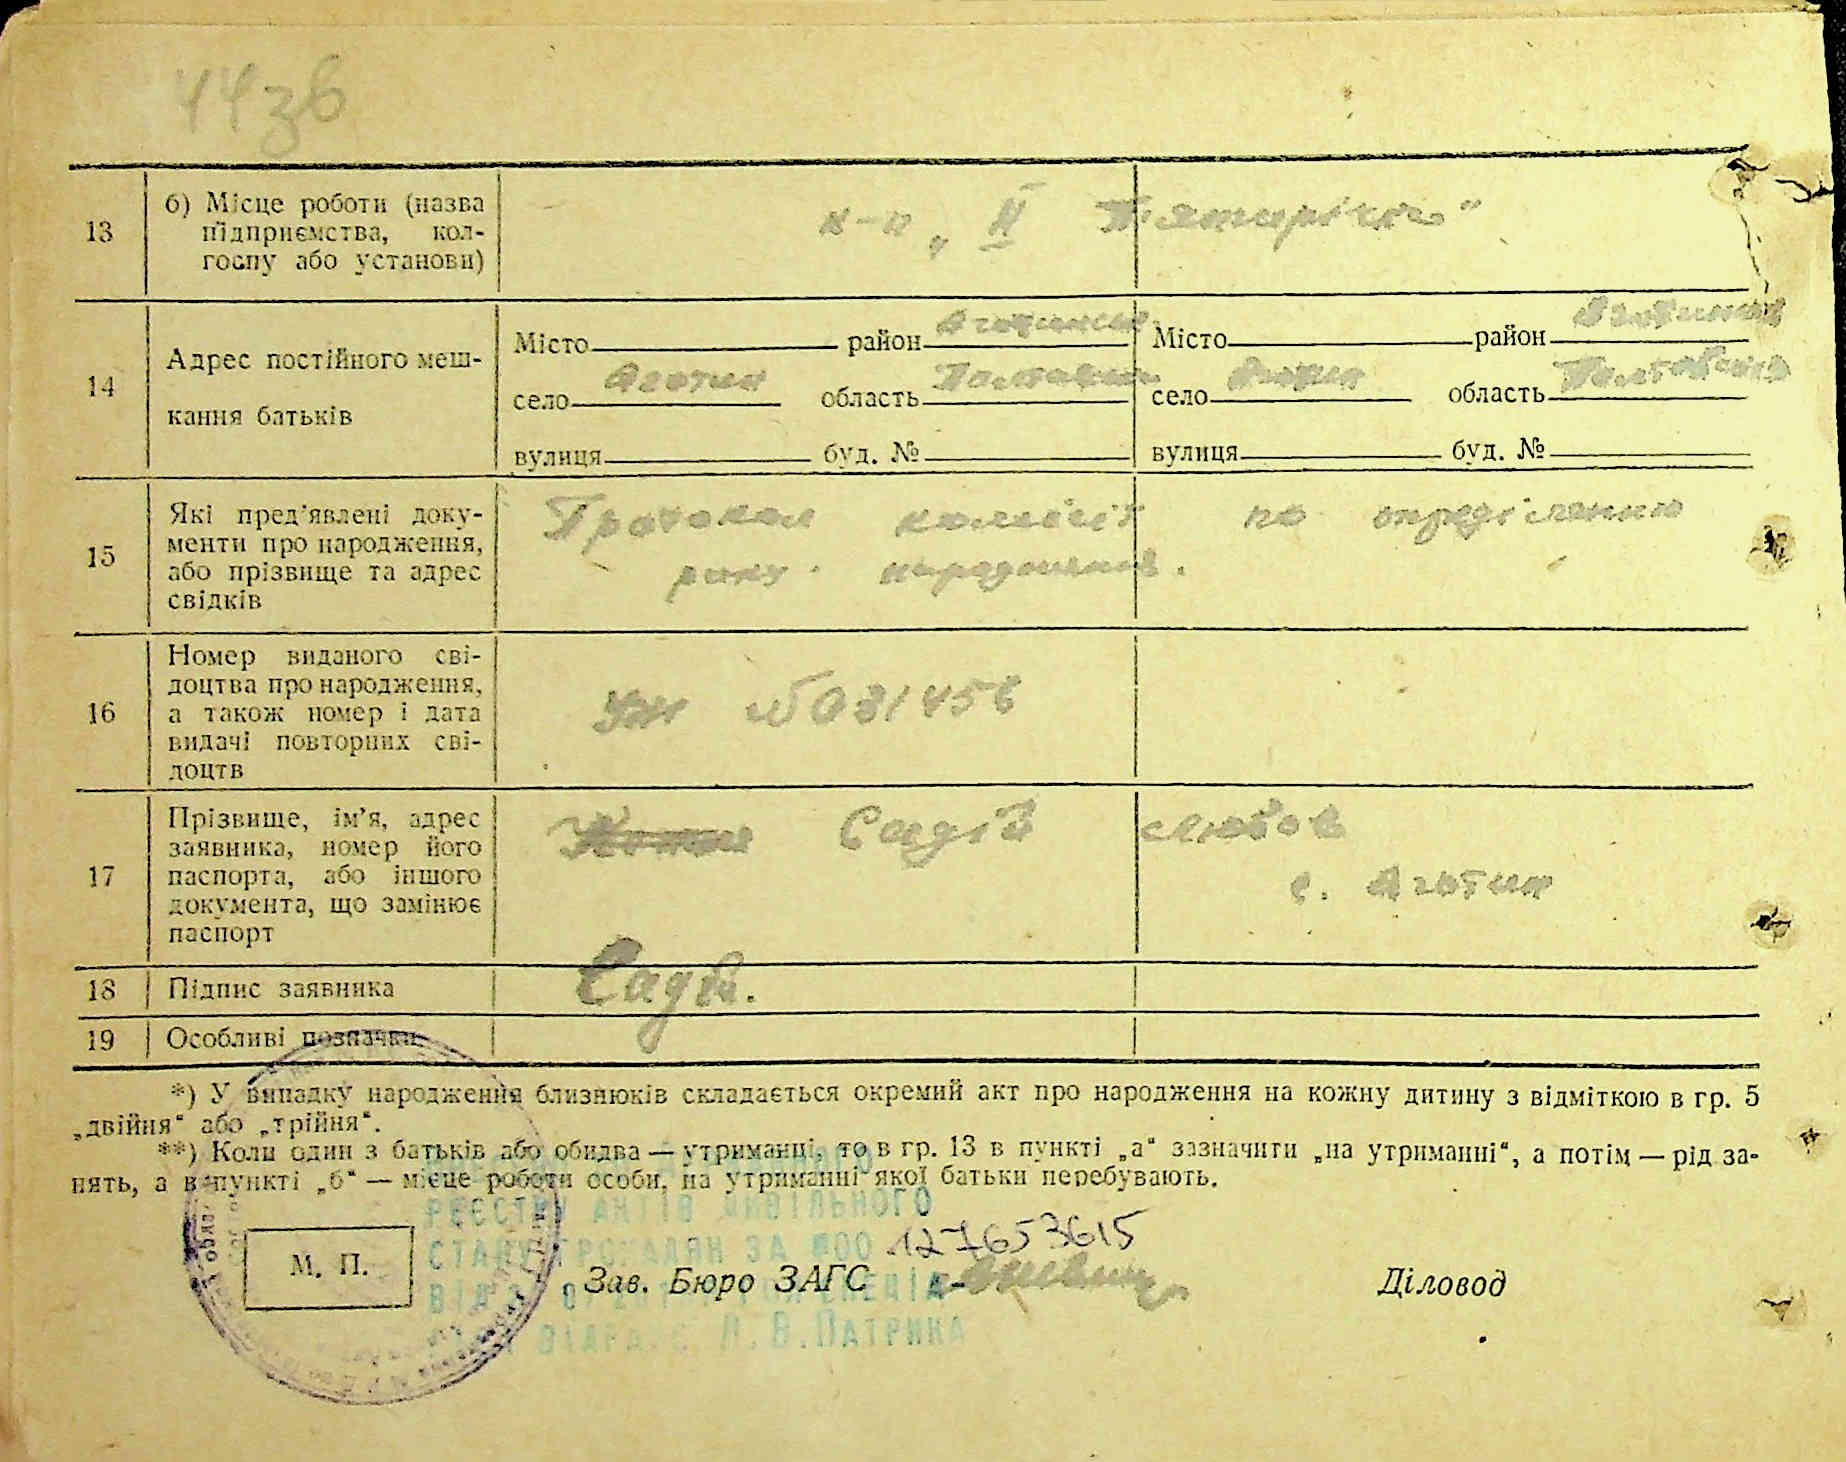 44зв
13
б) Місце роботи (назва
підприємства, кол-
госпу або установи)
к-п „ІІ П'ятирічка"
14
Адрес постійного меш-
кання батьків
Місто район Яготинськ Місто район Яготинськ
село Яготин область Полтавськ село Яготин область Полтавська
вулиця буд. № вулиця буд. №
15
Які пред'явлені доку-
менти про народження,
або прізвище та адрес
свідків
Протокол комісії по
року народження.
16
Номер виданого сві-
доцтва про народження,
а також номер і дата
видачі повторних сві-
доцтв
№ 031456
17
Прізвище, ім'я, адрес
заявника, номер його
паспорта, або іншого
документа, що замінює
паспорт
Садій Любов
с. Яготин
18 Підпис заявника
19 Особливі позначки
*) У випадку народження близнюків складається окремий акт про народження на кожну дитину з відміткою в гр. 5
„двійня" або „трійня".
**) Коли один з батьків або обидва — утриманці, то в гр. 13 в пункті „а" зазначити „на утриманні", а потім — рід за-
нять, а в пункті „б" — місце роботи особи, на утриманні якої батьки перебувають.
РЕЄСТРУ АКТІВ ЦИВІЛЬНОГО
СТАНУ ГРОМАДЯН ЗА №00 127653615
М. П.
Зав. Бюро ЗАГС
Діловод
Л. В. ПАТРИКА